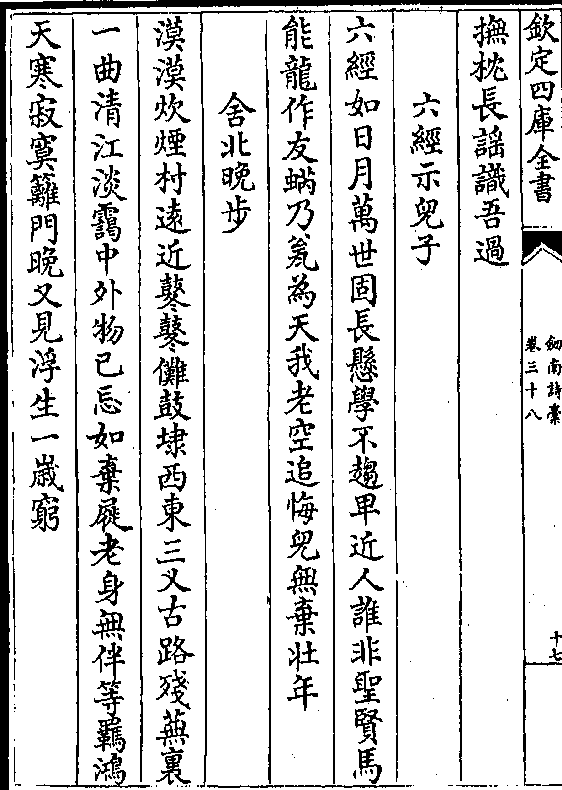 欽定四庫全書
劒南詩稾
卷三十八
十七
撫枕長謡識吾過
六經示兒子
六經如日月萬世固長懸學不趨卑近人誰非聖賢馬
能龍作友蝸乃瓮為天我老空追悔兒無棄壯年
舍北晩步
漠漠炊煙村遠近鼕鼕儺鼓埭西東三叉古路殘蕪裏
一曲清江淡靄中外物已忘如棄屣老身無伴等羈鴻
天寒寂寞籬門晚又見浮生一嵗窮